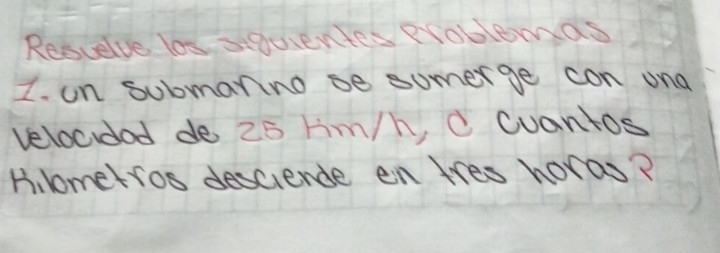 Resuelve los siguientes problemas
I. un submarino se sumerge con una
velocidad de 25 Km/h, c cuantos
Kilometros desciende en tres horas?